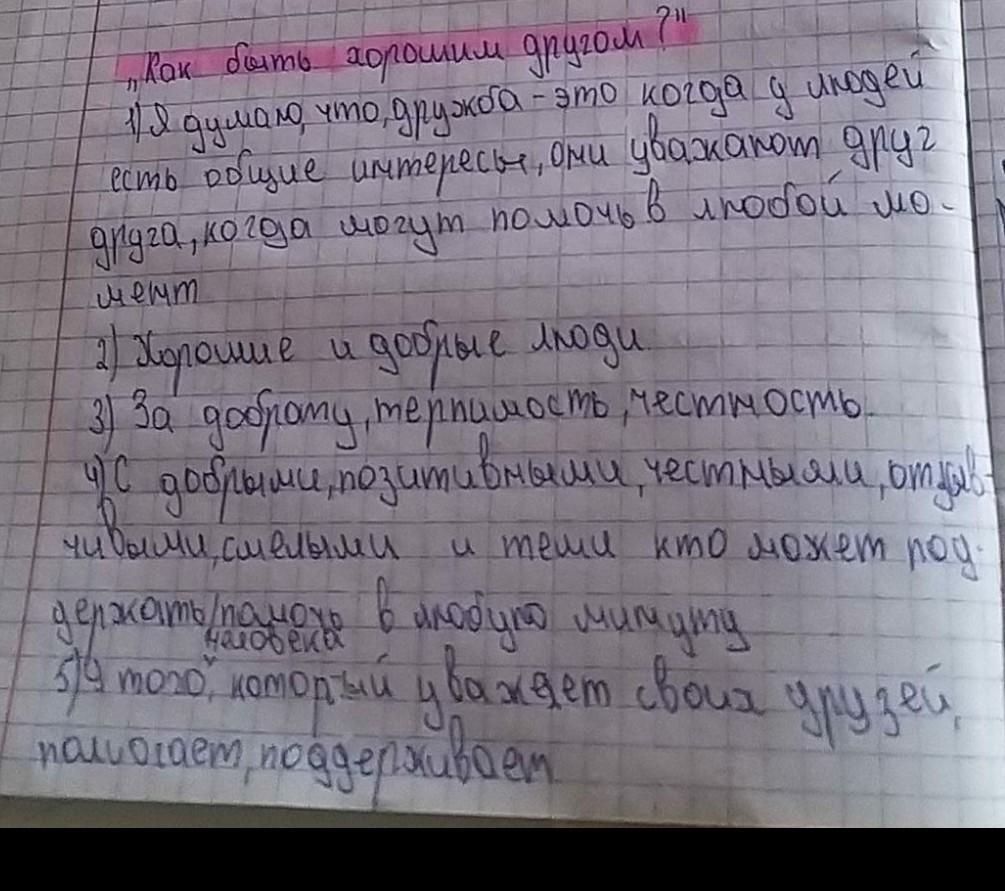 „Как быть хорошим другом?"
1) Я думаю, что, дружба - это когда у людей
есть общие интересы, они уважают друг
друга, когда могут помочь в любой мо-
мент
2) Хорошие и добрые люди
3) За доброту, терпимость, честность.
4) С добрыми, позитивными, честными, отзыв-
чивыми, смелыми и теми кто может под-
держать/помочь в любую минуту
человека
5) У того, который уважает своих друзей,
помогает, поддерживает